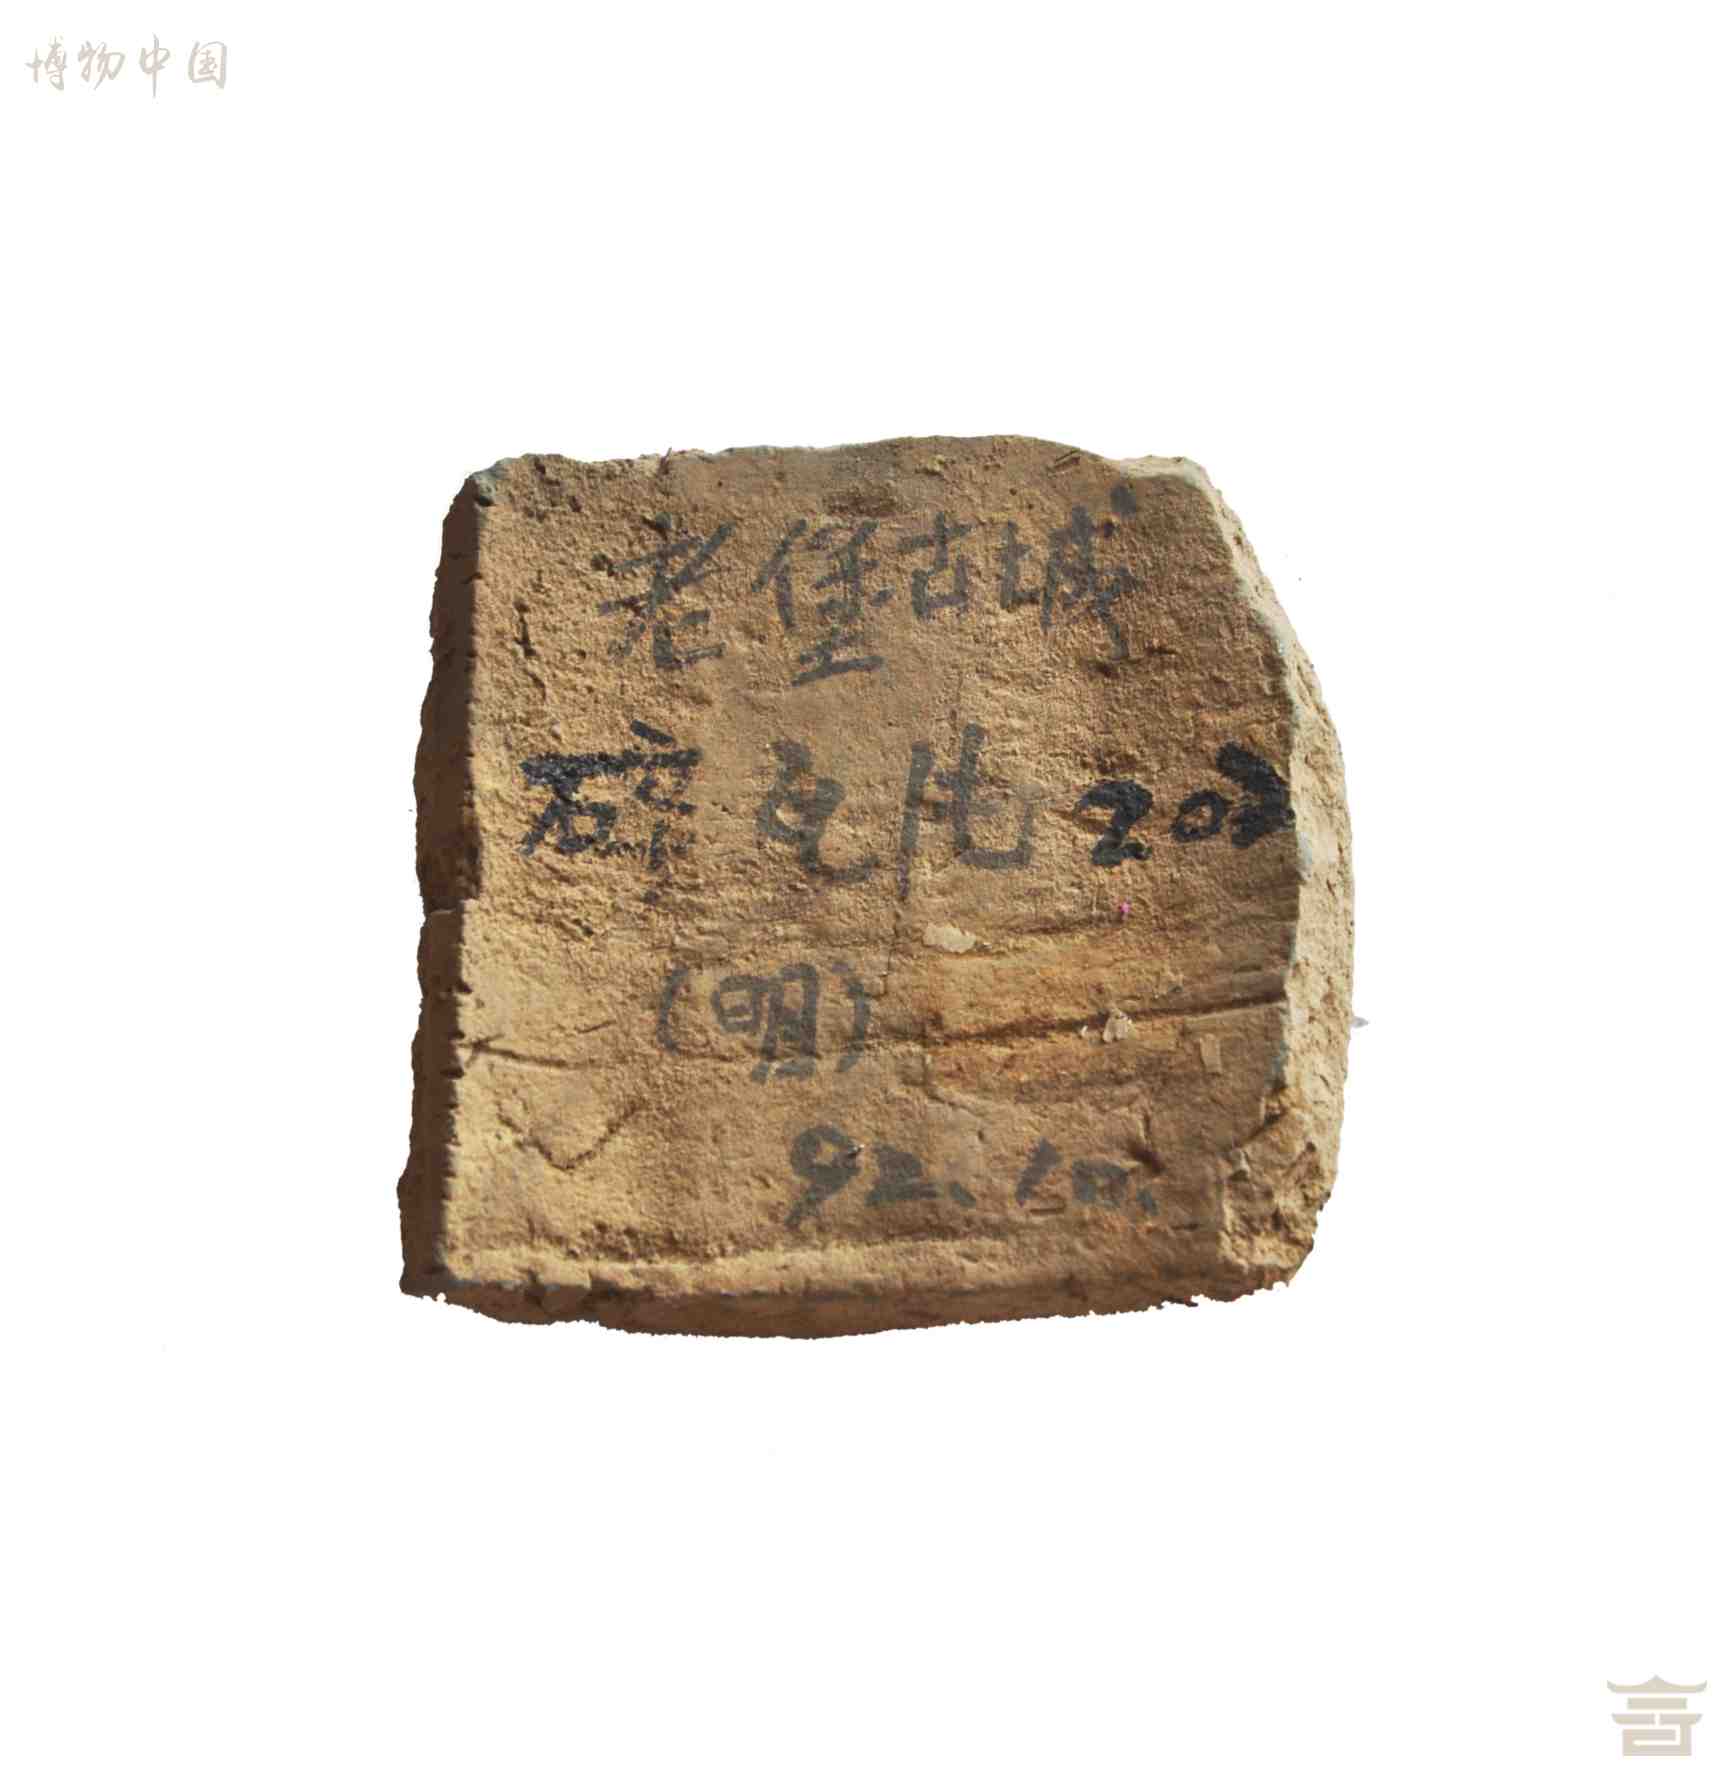 博物中国
老堡古城
碎瓦片 202
(明)
92.10.